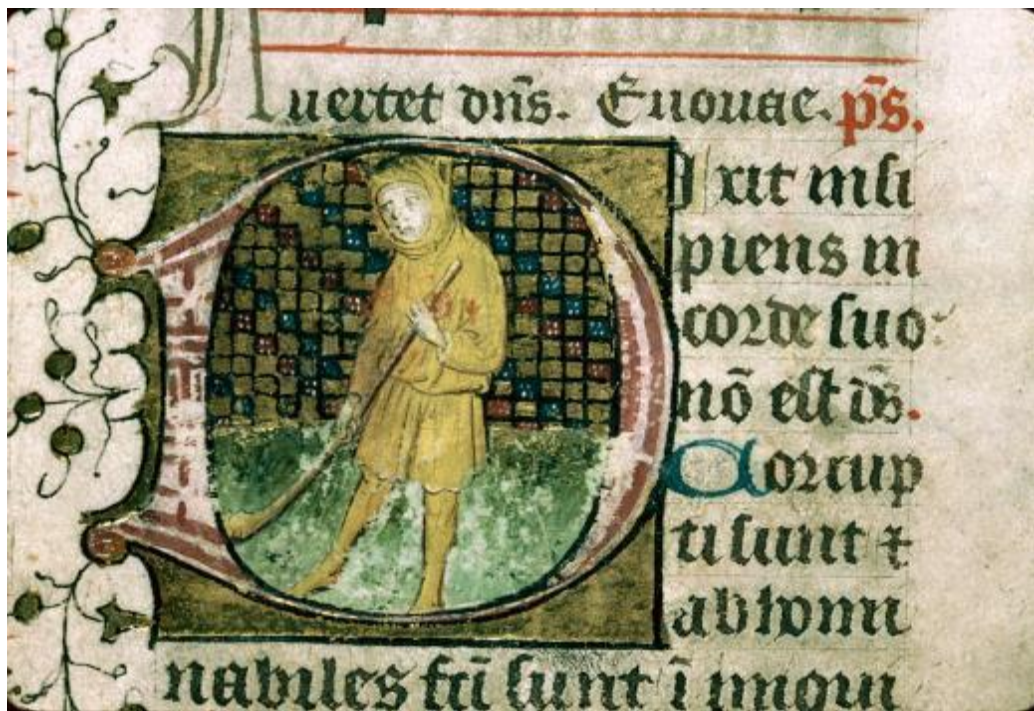 Auertet dn̄s. Euouae. p̄s.
Dixit insi
piens in
corde suo:
nō est dš.
Corrup
ti sunt ⁊
abhomi
nabiles fc̄i sunt ī iniqui